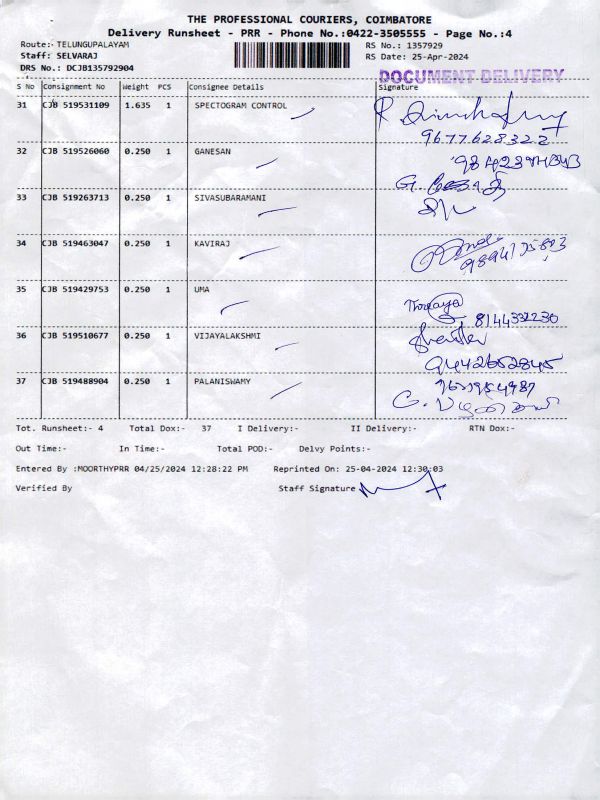 THE PROFESSIONAL COURIERS, COIMBATORE
Delivery Runsheet - PRR - Phone No.:0422-3505555 - Page No.:4
Route:- TELUNGUPALAYAM RS No.: 1357929
Staff: SELVARAJ RS Date: 25-Apr-2024
DRS No.: DCJB135792904
DOCUMENT DELIVERY
S No Consignment No Weight PCS Consignee Details Signature
31 CJB 519531109 1.635 1 SPECTOGRAM CONTROL
9677628322
32 CJB 519526060 0.250 1 GANESAN
33 CJB 519263713 0.250 1 SIVASUBARAMANI
34 CJB 519463047 0.250 1 KAVIRAJ
35 CJB 519429753 0.250 1 UMA
8144332230
36 CJB 519510677 0.250 1 VIJAYALAKSHMI
9442652845
37 CJB 519488904 0.250 1 PALANISWAMY
Tot. Runsheet:- 4 Total Dox:- 37 I Delivery:- II Delivery:- RTN Dox:-
Out Time:- In Time:- Total POD:- Delvy Points:-
Entered By :MOORTHYPRR 04/25/2024 12:28:22 PM Reprinted On: 25-04-2024 12:30:03
Verified By Staff Signature